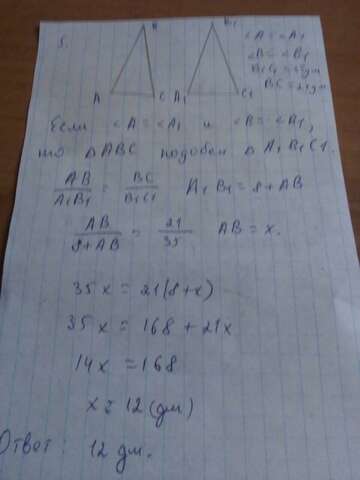 5.
B B1
A C A1 C1
∠A = ∠A1
∠B = ∠B1
B1C1 = 35 дм
BC = 21 дм
Если ∠A = ∠A1 и ∠B = ∠B1,
то ΔABC подобен Δ A1B1C1.
AB/A1B1 = BC/B1C1 A1B1 = 8 + AB
AB/8+AB = 21/35 AB = x.
35x = 21(8+x)
35x = 168 + 21x
14x = 168
x = 12 (дм)
Ответ: 12 дм.